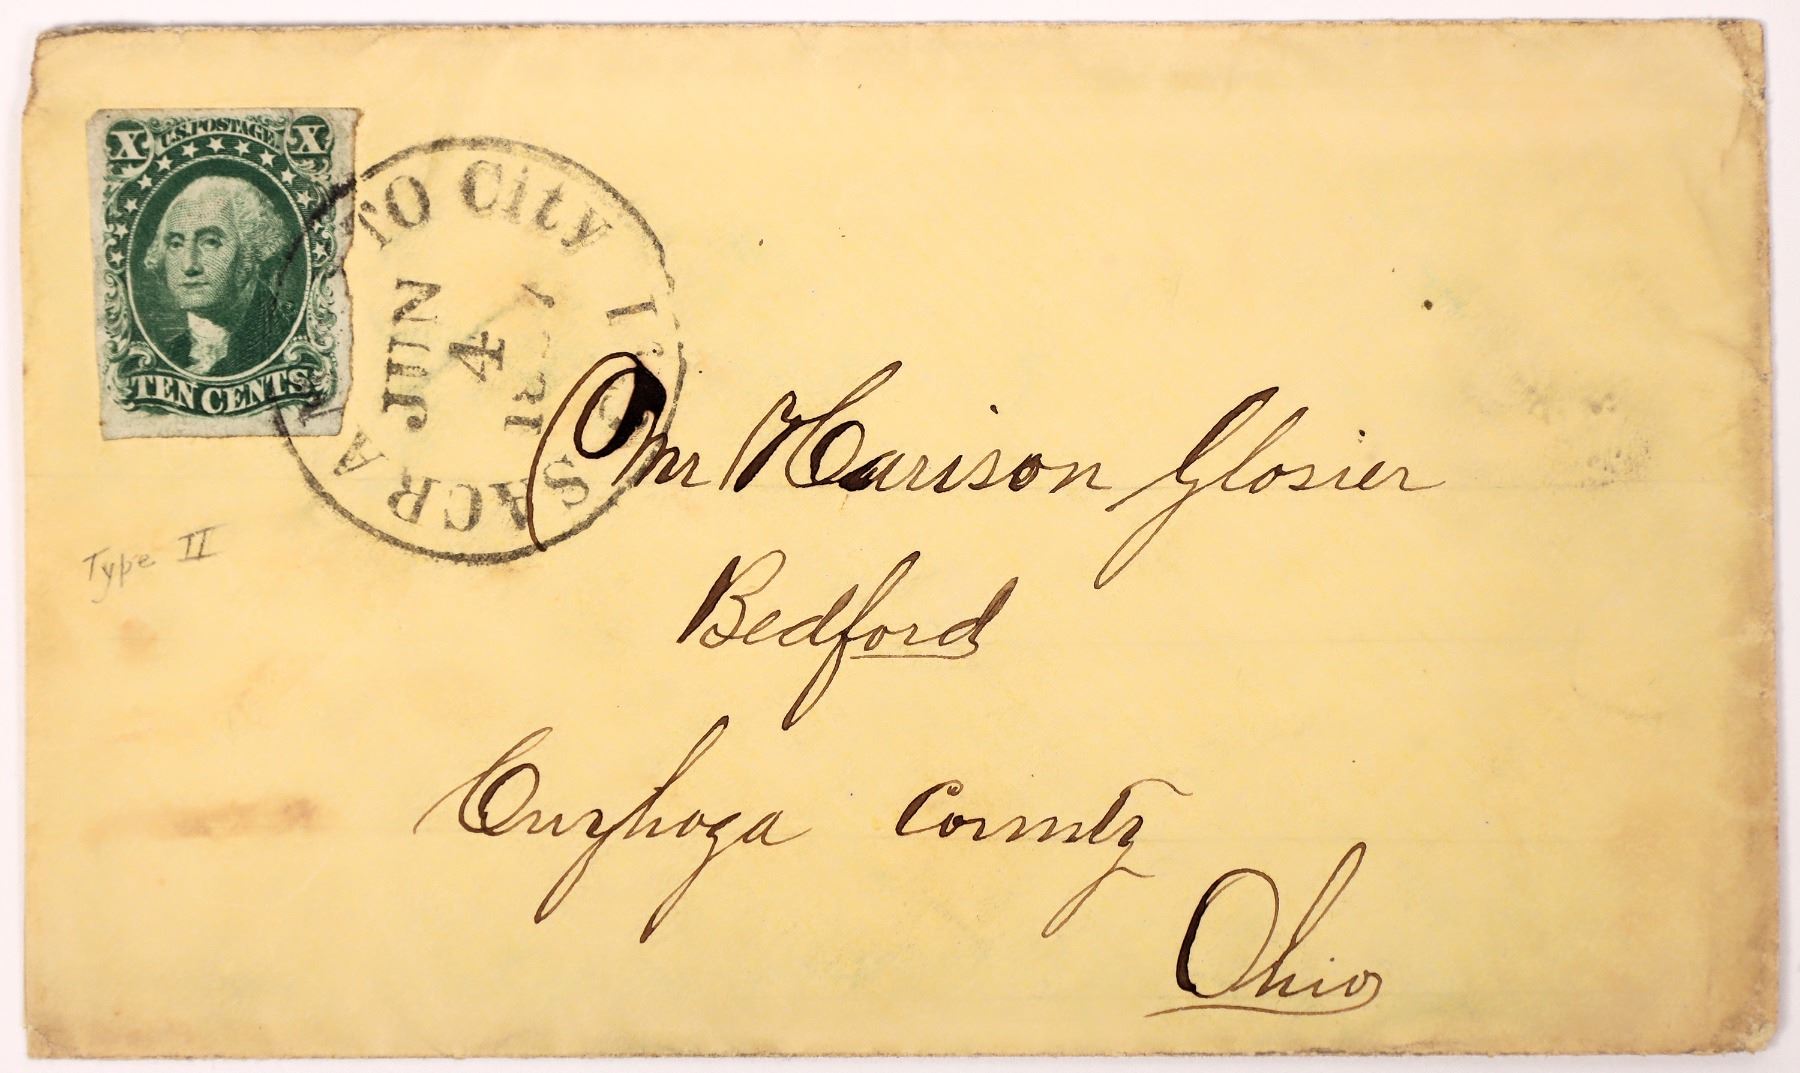 X U.S. POSTAGE X
TEN CENTS
SACRA TO City
JUN
4
Type II
Mr Harison Glosier
Bedford
Cuyhoga County
Ohio